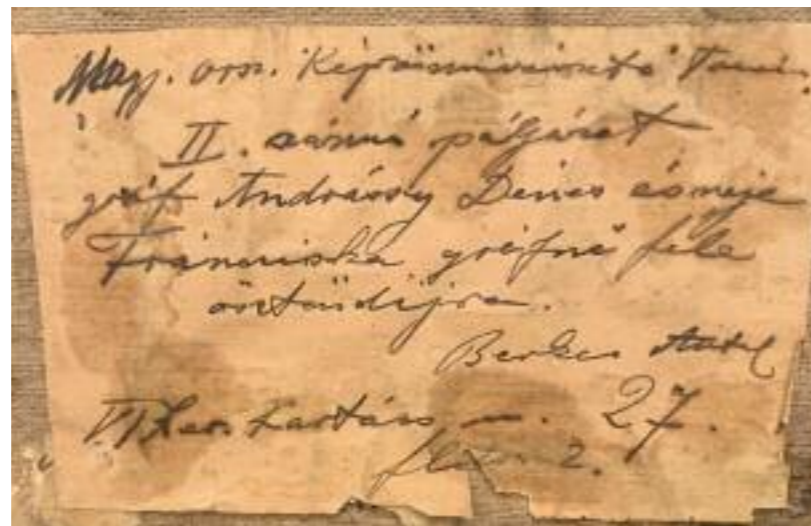 Magy. orsz. Képzőművészeti
II. számú pályázat
gróf Andrássy Dénes és neje
Franciska grófnő féle
ösztöndíjra.
Berkes Antal
VI. ker. 27.
2.